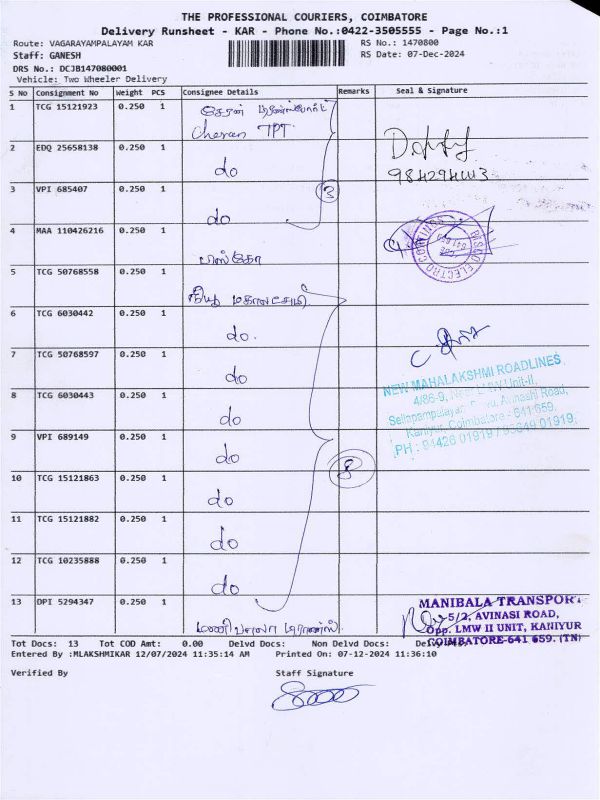 THE PROFESSIONAL COURIERS, COIMBATORE
Delivery Runsheet - KAR - Phone No.:0422-3505555 - Page No.:1
Route: VAGARAYAMPALAYAM KAR
RS No.: 1470800
Staff: GANESH
RS Date: 07-Dec-2024
DRS No.: DCJB147080001
Vehicle: Two Wheeler Delivery
S No Consignment No Weight PCS Consignee Details Remarks Seal & Signature
1 TCG 15121923 0.250 1 சேரன் டிரான்ஸ்போர்ட்
Cheran TPT
2 EDQ 25658138 0.250 1 do
3 VPI 685407 0.250 1 do
3
9842941113
4 MAA 110426216 0.250 1 பாஸ்கோ
ELECTRO COATINGS
5 TCG 50768558 0.250 1 நியூ மகாலட்சுமி
6 TCG 6030442 0.250 1 do
7 TCG 50768597 0.250 1 do
8 TCG 6030443 0.250 1 do
9 VPI 689149 0.250 1 do
10 TCG 15121863 0.250 1 do
11 TCG 15121882 0.250 1 do
12 TCG 10235888 0.250 1 do
8
NEW MAHALAKSHMI ROADLINES
4/86-9, Near LMW Unit-II,
Sellapampalayam Avinashi Road,
Kaniyur, Coimbatore - 641 659.
PH : 94426 01919 / 01919
13 DPI 5294347 0.250 1 மணிபாலா டிரான்ஸ்
MANIBALA TRANSPORT
5/2, AVINASI ROAD,
Opp. LMW II UNIT, KANIYUR
COIMBATORE-641 659. (TN)
Tot Docs: 13 Tot COD Amt: 0.00 Delvd Docs: Non Delvd Docs:
Entered By :MLAKSHMIKAR 12/07/2024 11:35:14 AM Printed On: 07-12-2024 11:36:10
Verified By Staff Signature